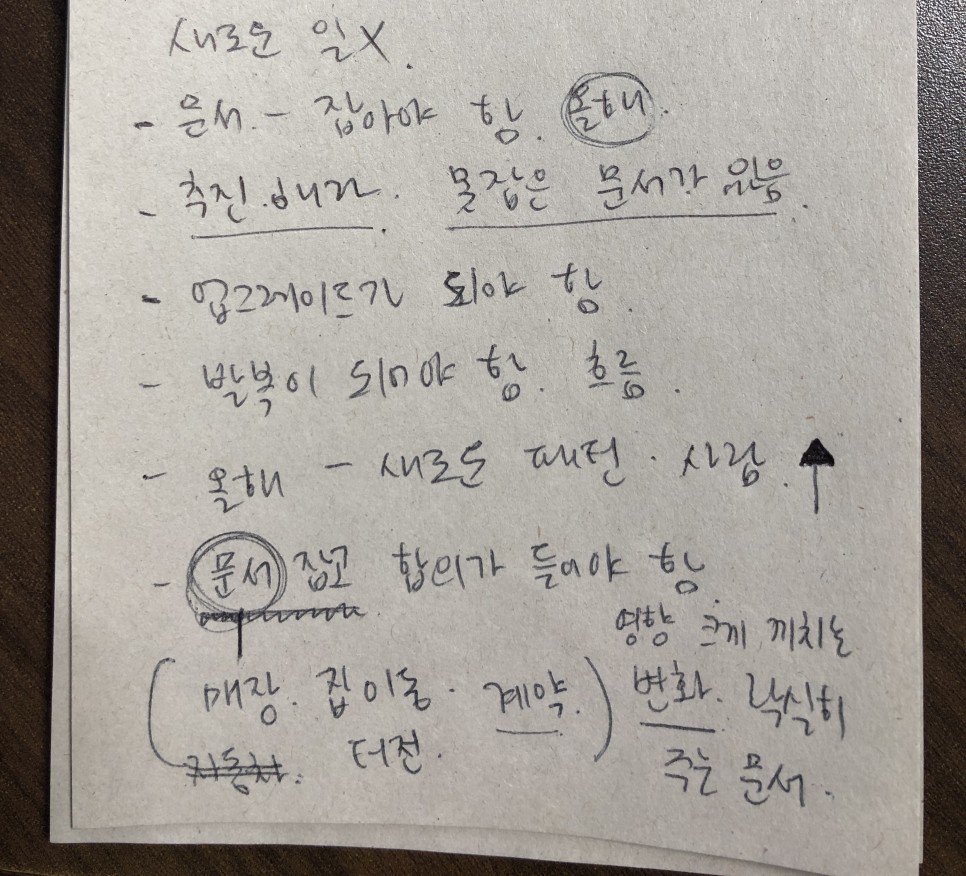 새로운 일X.
- 문서. - 잡아야 함. 올해.
- 추진.해라. 못잡은 문서가 있음.
- 업그레이드가 되야 함.
- 발복이 되어야 함. 흐름.
- 올해 - 새로운 패턴. 사람. ↑
- 문서 잡고 합의가 들어야 함.
(매장. 집이동. 계약.)
자동차. 터전.
영향 크게 끼치는
변화. 확실히
주는 문서.